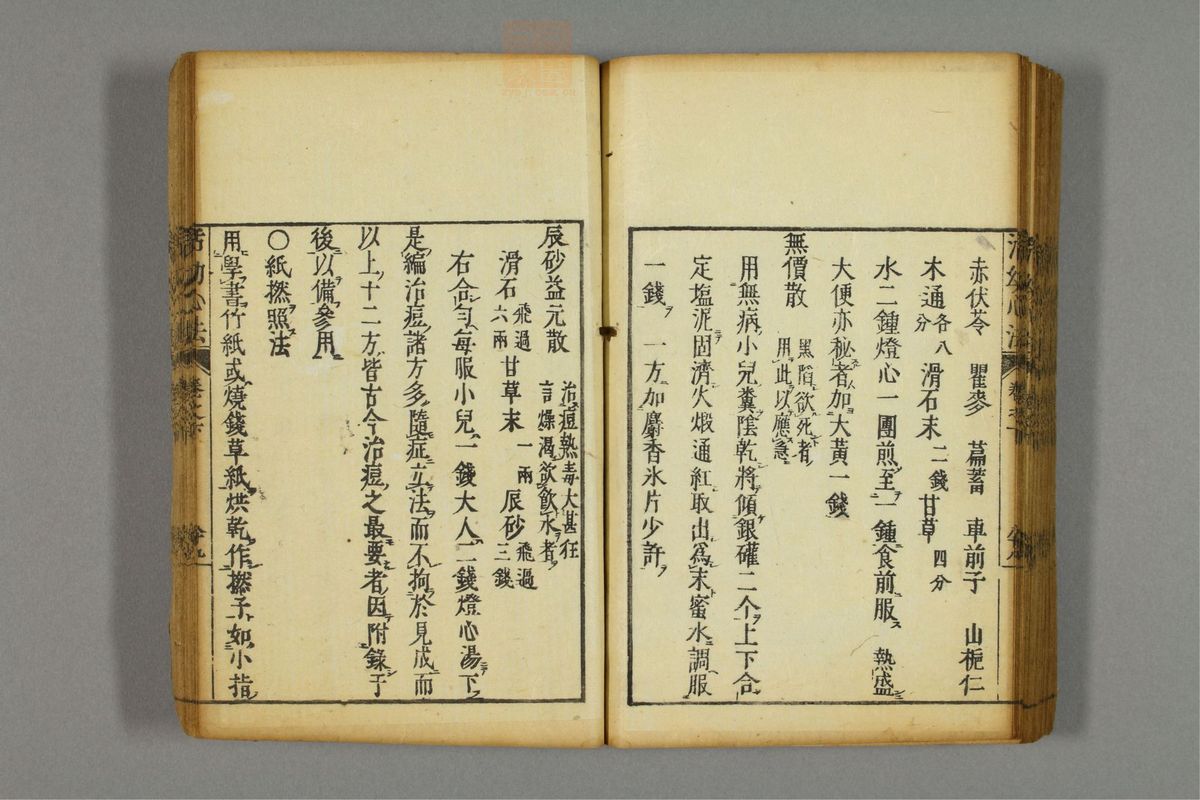 赤伏苓　瞿麥　萹蓄　車前子　山梔仁
木通各八分　滑石末二錢　甘草四分
水二鍾燈心一團煎至一鍾食前服　熱盛
大便亦秘者加大黃一錢
無價散　黑陷欲死者用此以應急
用無病小兒糞陰乾將傾銀礶二个上下合
定塩泥固濟火煅通紅取出為末蜜水調服
一錢　一方加麝香氷片少許
辰砂益元散　治痘熱毒大甚狂言燥渴欲飲水者
滑石飛過六兩　甘草末一兩　辰砂飛過三錢
右合匀每服小兒一錢大人二錢燈心湯下
是編治痘諸方多隨症立法而不拘於見成而
以上十二方皆古今治痘之最要者因附錄于
後以備參用
〇紙撚照法
用學書竹紙或燒錢草紙烘乾作撚子如小指
活幼心法